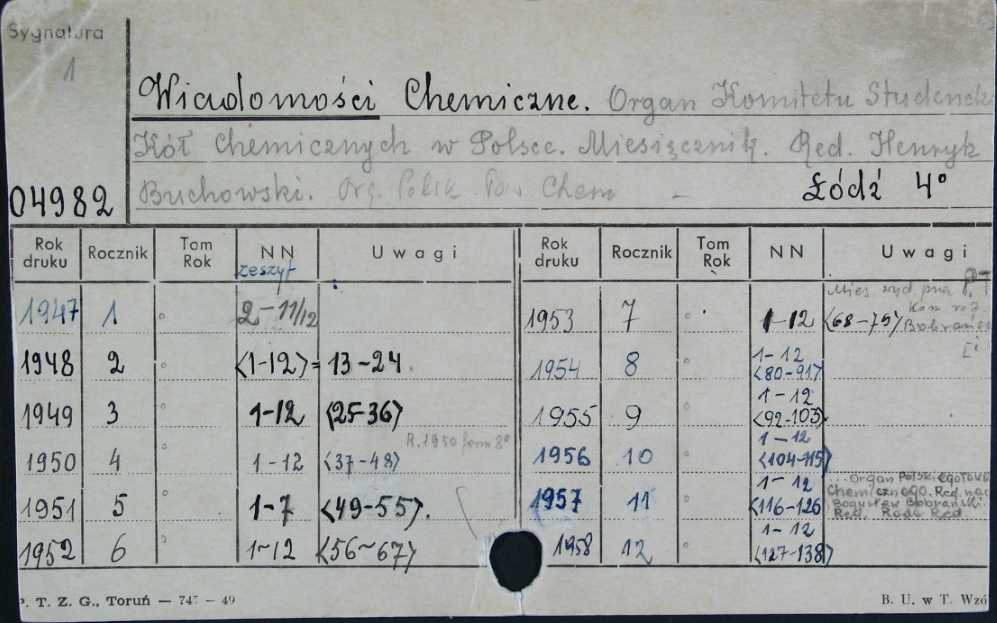 Sygnatura
1
Wiadomości Chemiczne. Organ Komitetu Studenck
Kół Chemicznych w Polsce. Miesięcznik. Red. Henryk
Buchowski. Org. Polsk. Tow. Chem - Łódź 4°
04982
Rok druku Rocznik Tom Rok NN zeszyt Uwagi Rok druku Rocznik Tom Rok NN Uwagi
1947 1 2-11/12
1948 2 <1-12> = 13-24.
1949 3 1-12 <25-36>
R. 1950 form 8°
1950 4 1-12 <37-48>
1951 5 1-7 <49-55>.
1952 6 1-12 <56-67>
Mies. wyd. prze P.T
Kom red.
1953 7 1-12 <68-79> Bobrańs
[i
1954 8 1-12 <80-91>
1955 9 1-12 <92-103>
1956 10 1-12 <104-115>
1957 11 1-12 <116-126
Organ Polskiego Tow.
Chemicznego. Red. nac
Bogusław Bobrański.
Red. Rada Red
1958 12 1-12 <127-138>
P. T. Z. G., Toruń — 747 — 49
B. U. w T. Wzó